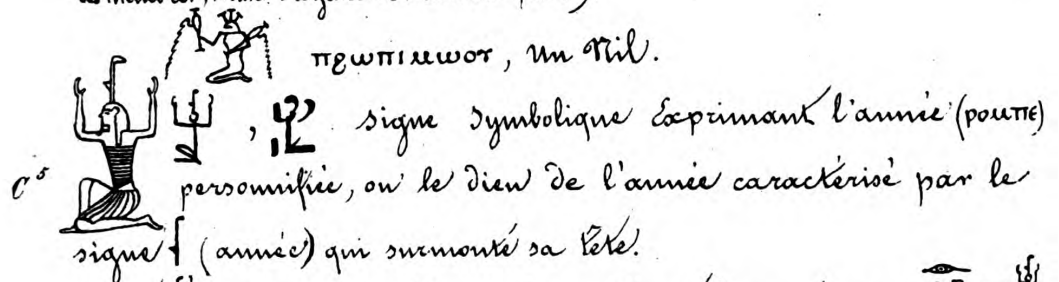 ⲡϩⲱⲡⲓⲙⲱⲟⲩ, un Nil.
, signe symbolique Exprimant l'année (ⲣⲟⲙⲡⲉ)
C⁵ personnifiée, ou le dieu de l'année caractérisé par le
signe (année) qui surmonté sa tête.